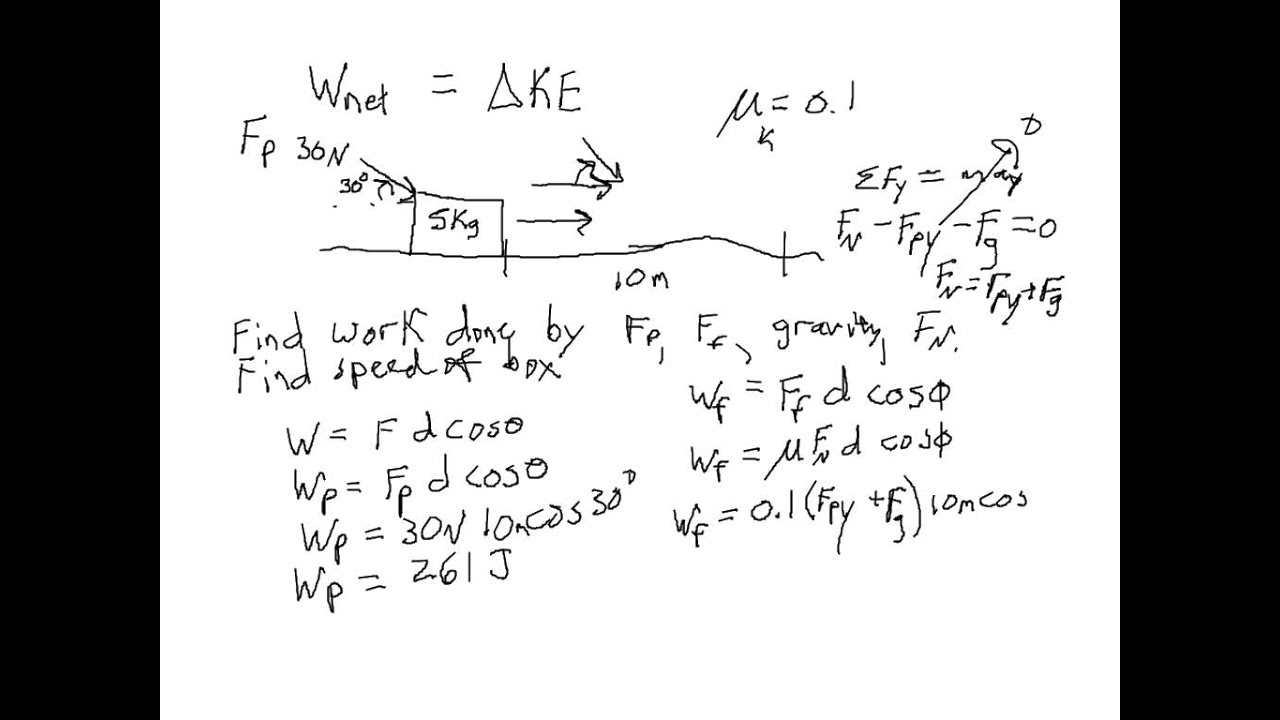 Wnet = ΔKE
μk = 0.1
Fp 30N
30°
5Kg
10m
ΣFy = may 0
FN - Fpy - Fg = 0
FN = Fpy + Fg
Find work done by Fp, Ff, gravity, FN.
Find speed of box
W = F d cosθ
Wp = Fp d cosθ
Wp = 30N 10m cos 30°
Wp = 261 J
Wf = Ff d cosϕ
Wf = μ FN d cosϕ
Wf = 0.1 (Fpy + Fg) 10m cos